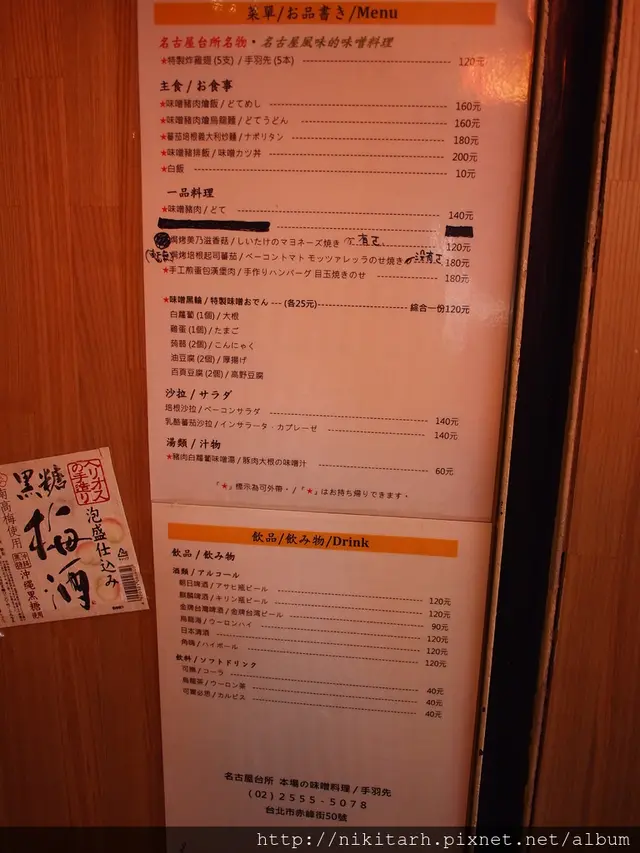 菜單/お品書き/Menu
名古屋台所名物・名古屋風味的味噌料理
★特製炸雞翅 (5支) / 手羽先 (5本) 120元
主食 / お食事
★味噌豬肉燴飯 / どてめし 160元
★味噌豬肉燴烏龍麵 / どてうどん 160元
★蕃茄培根義大利炒麵 / ナポリタン 180元
★味噌豬排飯 / 味噌カツ丼 200元
★白飯 10元
一品料理
★味噌豬肉 / どて 140元
焗烤美乃滋香菇 / しいたけのマヨネーズ焼き 120元
焗烤培根起司蕃茄 / ベーコントマト モッツァレッラのせ焼き 180元
★手工煎蛋包漢堡肉 / 手作りハンバーグ 目玉焼きのせ 180元
★味噌黑輪 / 特製味噌おでん --- (各25元) 綜合一份120元
白蘿蔔 (1個) / 大根
雞蛋 (1個) / たまご
蒟蒻 (2個) / こんにゃく
油豆腐 (2個) / 厚揚げ
百頁豆腐 (2個) / 高野豆腐
沙拉 / サラダ
培根沙拉 / ベーコンサラダ 140元
乳酪蕃茄沙拉 / インサラータ・カプレーゼ 140元
湯類 / 汁物
★豬肉白蘿蔔味噌湯 / 豚肉大根の味噌汁 60元
「★」標示為可外帶。/「★」はお持ち帰りできます。
飲品/飲み物/Drink
飲品 / 飲み物
酒類 / アルコール
朝日啤酒 / アサヒ瓶ビール 120元
麒麟啤酒 / キリン瓶ビール 120元
金牌台灣啤酒 / 金牌台湾ビール 90元
烏龍海 / ウーロンハイ 120元
日本清酒 120元
角嗨 / ハイボール 120元
飲料 / ソフトドリンク
可樂 / コーラ 40元
烏龍茶 / ウーロン茶 40元
可爾必思 / カルピス 40元
名古屋台所 本場の味噌料理 / 手羽先
(02) 2555-5078
台北市赤峰街50號
ヘリオスの手造り
黒糖
梅酒
泡盛仕込み
南高梅使用
沖縄黒糖
http://nikitarh.pixnet.net/album